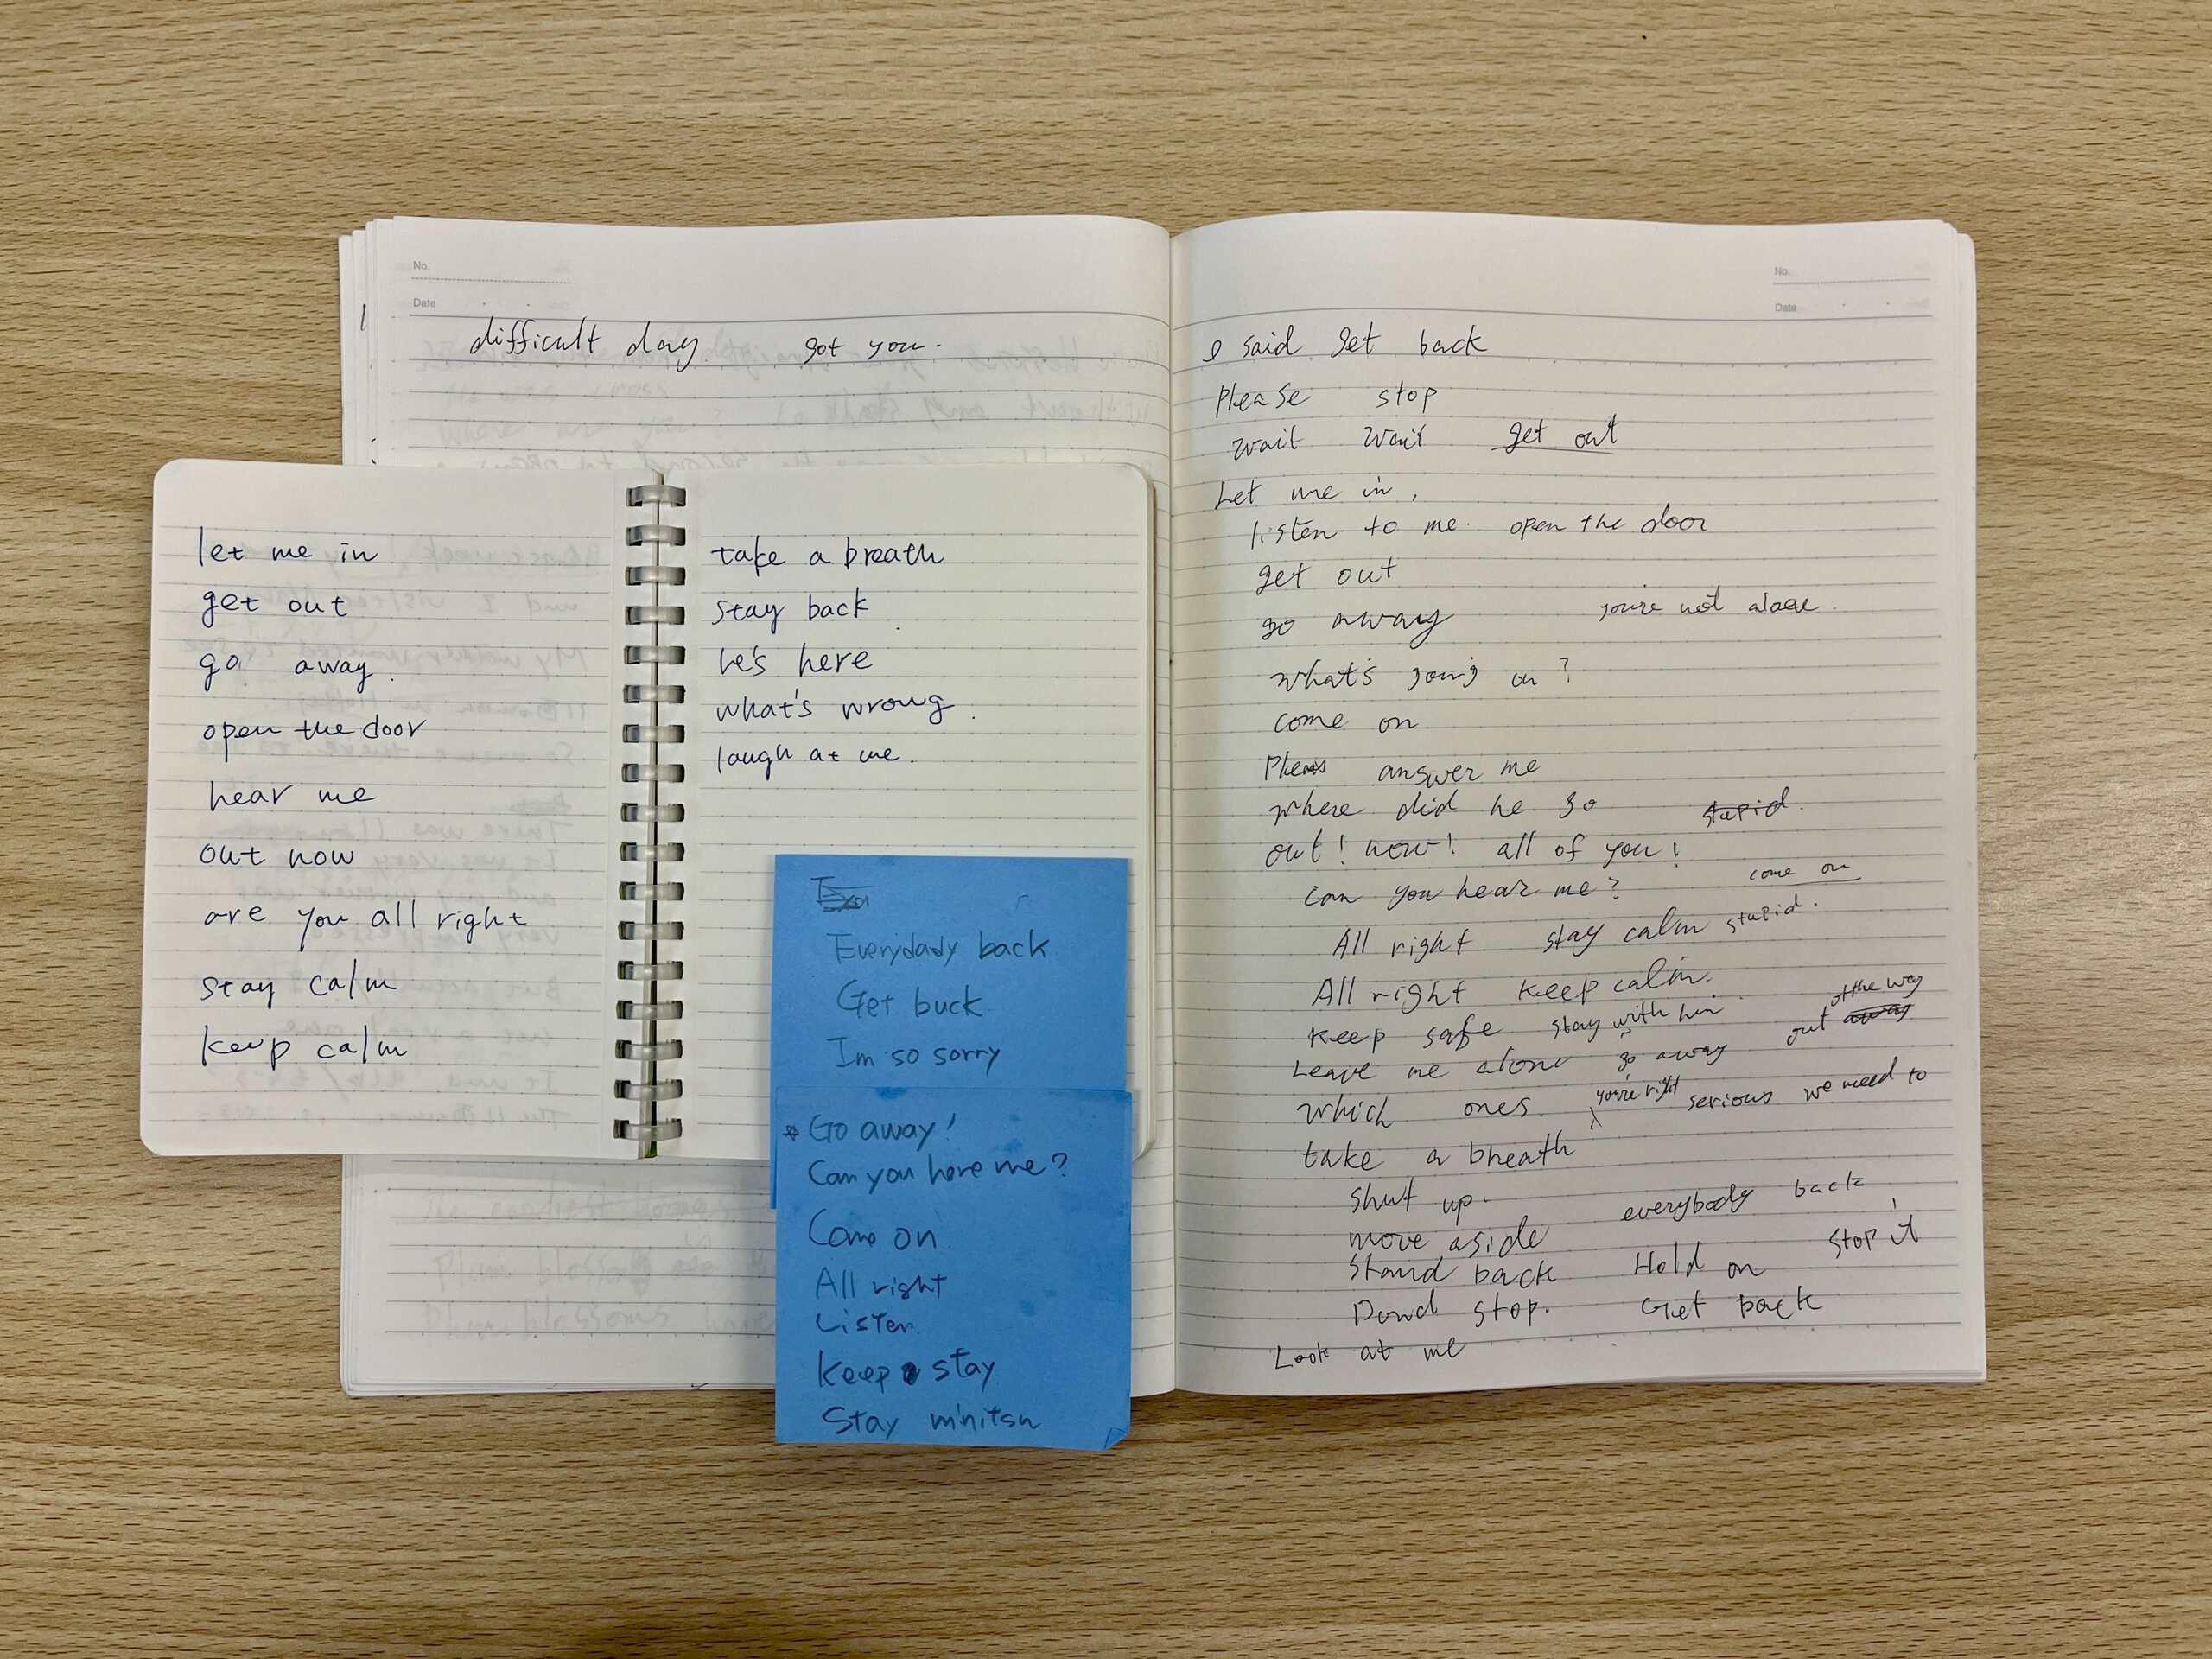 No.
Date
difficult day got you.
let me in
get out
go away.
open the door
hear me
out now
are you all right
stay calm
keep calm
take a breath
stay back
he's here
what's wrong.
laugh at me.
Everydady back
Get buck
Im so sorry
* Go away!
Can you here me?
Come on
All right
Listen
Keep stay
Stay minitsu
No.
Date
I said get back
Please stop
wait wait get out
Let me in,
listen to me. open the door
get out
go away you're not alone.
what's going on ?
come on
answer me
where did he go stupid.
out! now! all of you!
Can you hear me? come on
All right stay calm stupid.
All right keep calm.
keep safe stay with him
Leave me alone go away out away of the way
which ones. you're right serious we need to
take a breath
shut up.
everybody back
move aside
Stand back Hold on stop it
Dond stop. Get back
Look at me